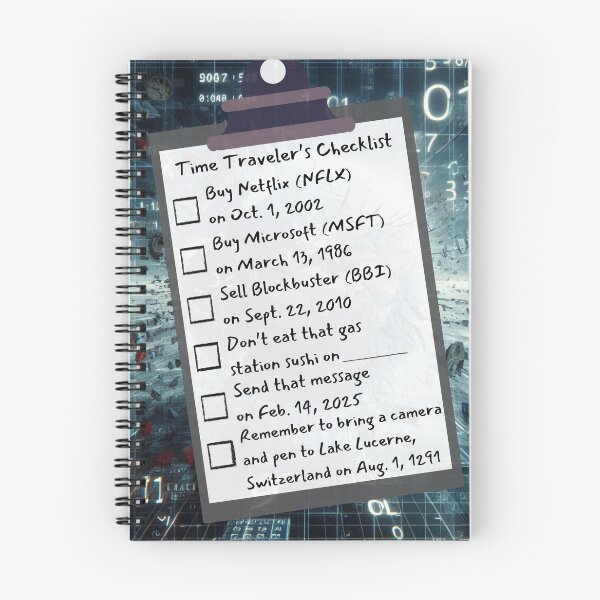 Time Traveler's Checklist
Buy Netflix (NFLX)
on Oct. 1, 2002
Buy Microsoft (MSFT)
on March 13, 1986
Sell Blockbuster (BBI)
on Sept. 22, 2010
Don't eat that gas
station sushi on ________
Send that message
on Feb. 14, 2025
Remember to bring a camera
and pen to Lake Lucerne,
Switzerland on Aug. 1, 1291